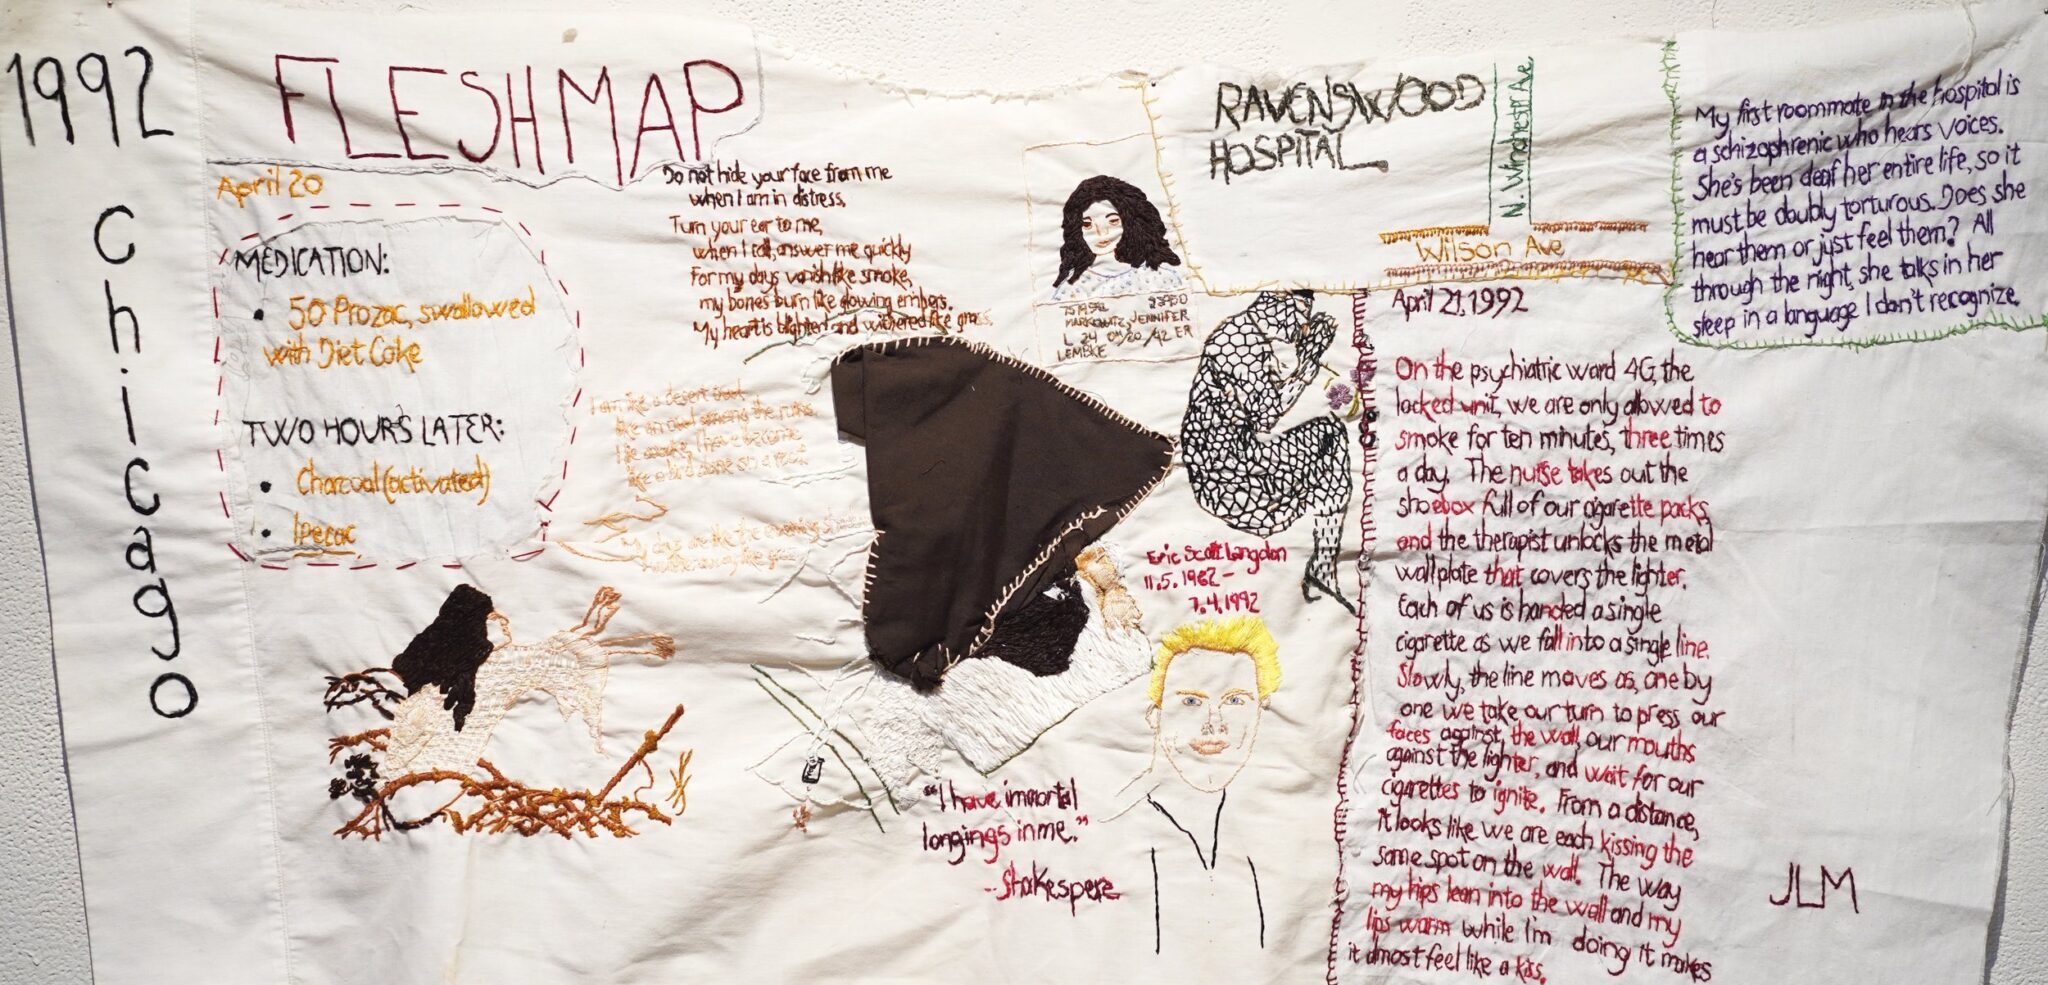 1992
Chicago
FLESHMAP
April 20
MEDICATION:
• 50 Prozac, swallowed
with Diet Coke
TWO HOURS LATER:
• Charcoal (activated)
• Ipecac
Do not hide your face from me
when I am in distress,
Turn your ear to me,
when I call, answer me quickly
For my days vanish like smoke,
my bones burn like glowing embers.
My heart is blighted and withered like grass,
I am like a desert owl
like an owl among the ruins
I lie awake, I have become
like a bird alone on a roof
My days are like the evening shadow
I wither away like grass
MARKOWITZ, JENNIFER
LEMBKE
RAVENSWOOD
HOSPITAL
N. Winchester Ave.
Wilson Ave
My first roommate in the hospital is
a schizophrenic who hears voices.
She's been deaf her entire life, so it
must be doubly torturous. Does she
hear them or just feel them? All
through the night, she talks in her
sleep in a language I don't recognize.
Eric Scott Langdon
11.5.1962–
7.4.1992
"I have immortal
longings in me."
-- Shakespere
April 21, 1992
On the psychiatric ward 4G, the
locked unit, we are only allowed to
smoke for ten minutes, three times
a day. The nurse takes out the
shoebox full of our cigarette packs
and the therapist unlocks the metal
wallplate that covers the lighter.
Each of us is handed a single
cigarette as we fall into a single line.
Slowly, the line moves as, one by
one we take our turn to press our
faces against, the wall, our mouths
against the lighter, and wait for our
cigarettes to ignite. From a distance,
it looks like we are each kissing the
same spot on the wall. The way
my hips lean into the wall and my
lips warm while I'm doing it makes
it almost feel like a kiss.
JLM